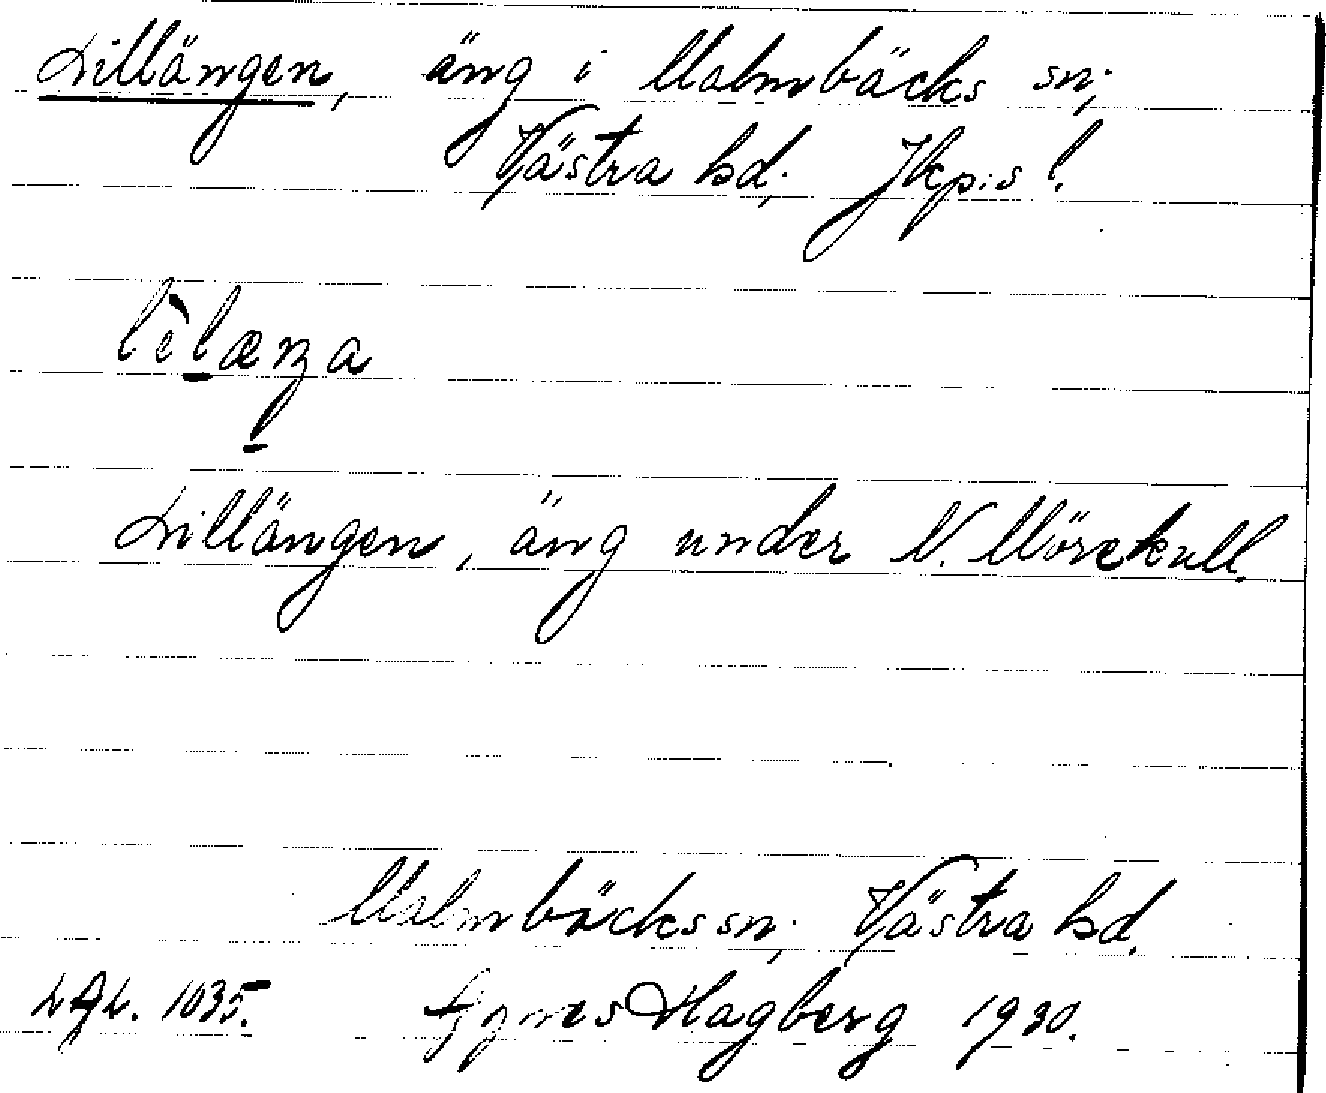 Lillängen, äng i Malmbäcks sn;
Västra hd; Jkp:s l.
Lillängen, äng under N. Mörekull.
Malmbäcks sn; Västra hd.
1035. Agnes Hagberg 1930.